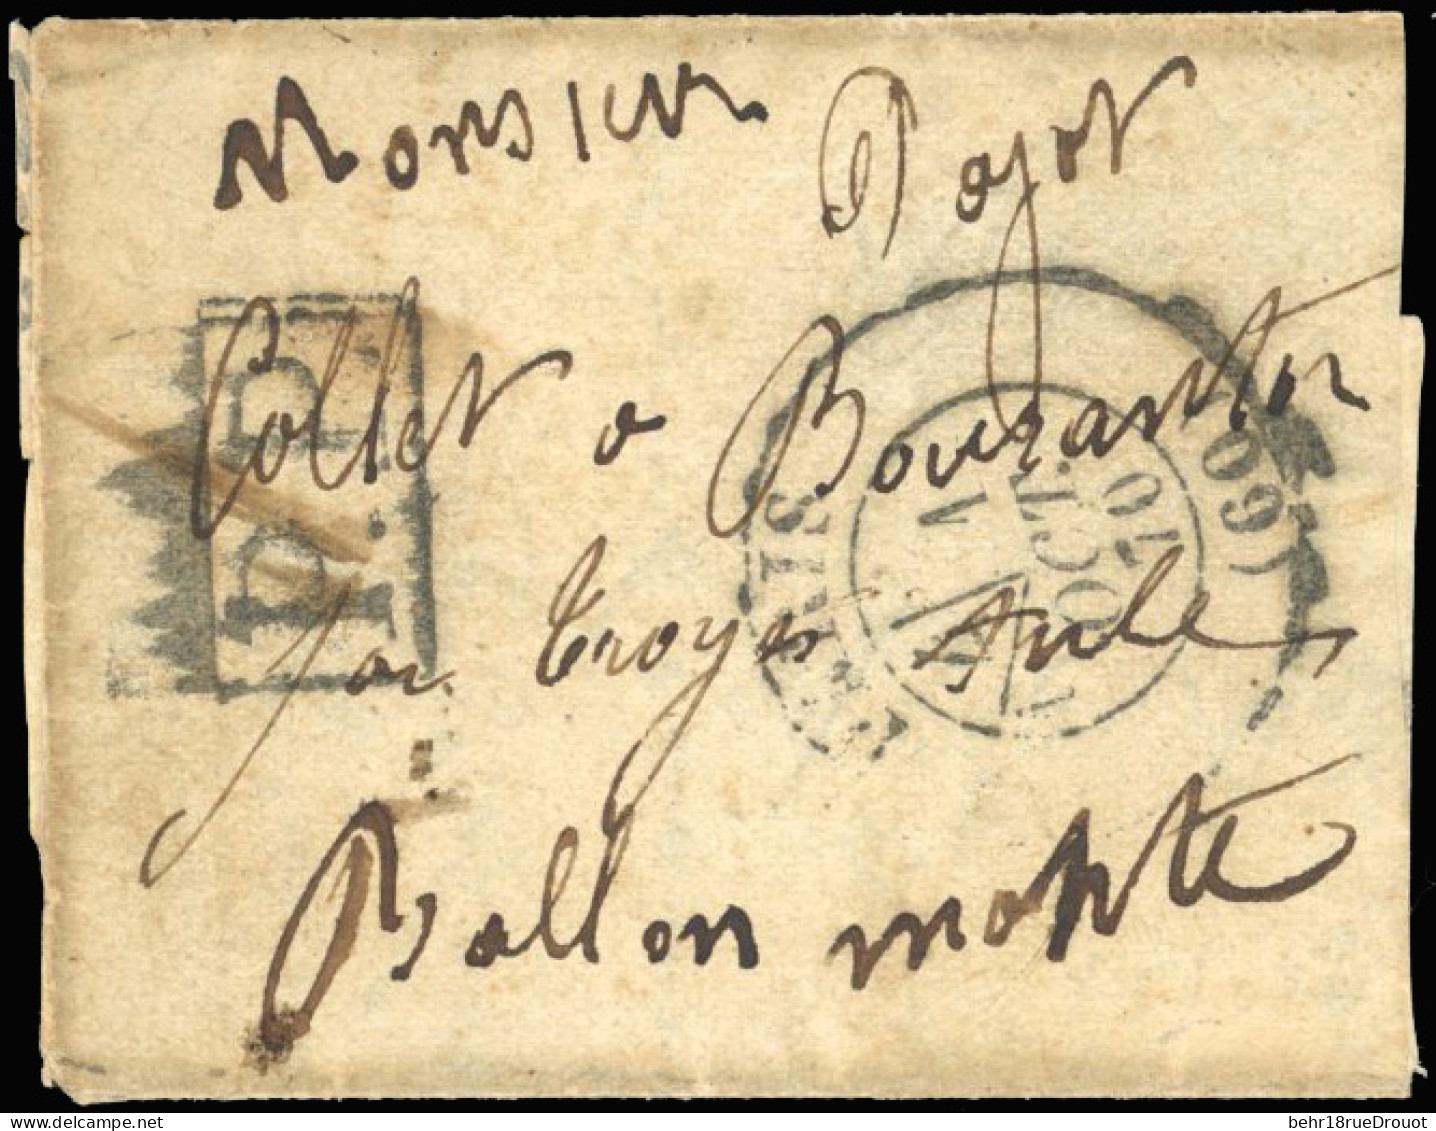 Monsieur Dojot
Collet à Bouranton
par Troyes Aube
Ballon monté
P.P.
PARIS
(60)
1
OCT.
70
behr18rueDrouot